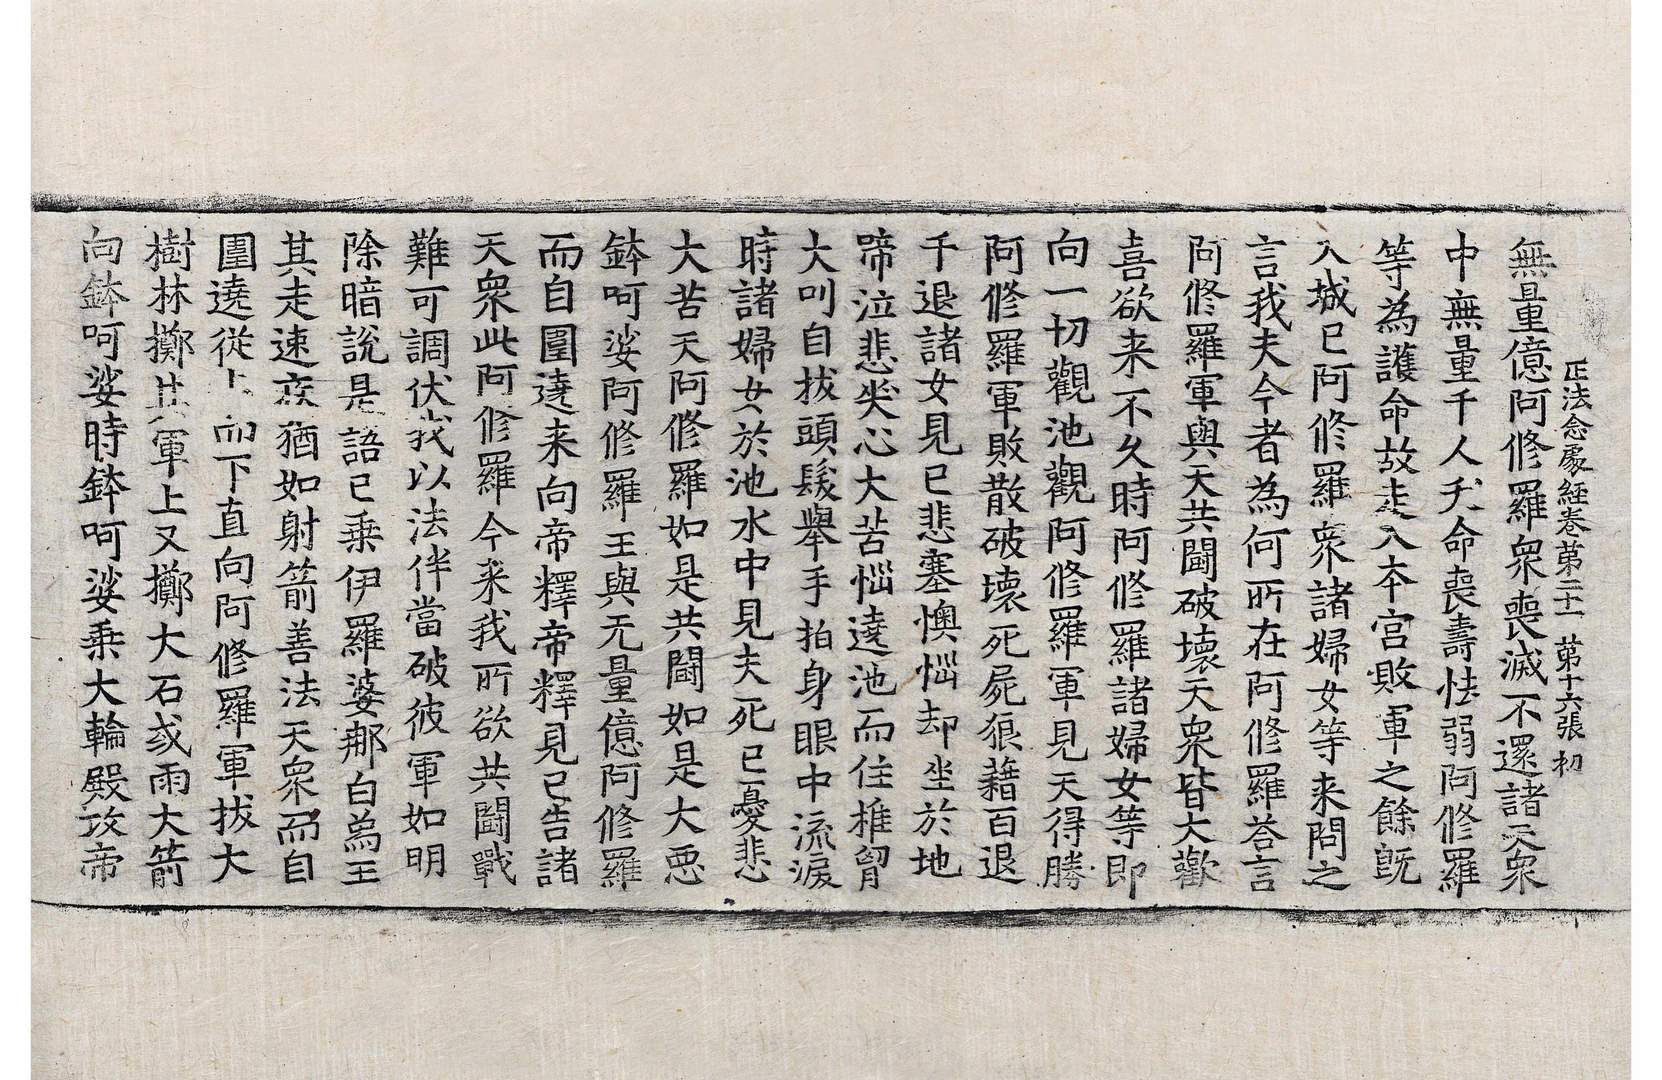 正法念處經卷第二十一 第十六張 初
無量億阿修羅眾喪滅不還諸天眾
中無量千人夭命喪壽怯弱阿修羅
等為護命故走入本宮敗軍之餘既
入城已阿修羅眾諸婦女等来問之
言我夫今者為何所在阿修羅荅言
阿修羅軍與天共鬪破壞天眾皆大歡
喜欲来不久時阿修羅諸婦女等即
向一切觀池觀阿修羅軍見天得勝
阿修羅軍敗散破壞死屍狼藉百退
千退諸女見已悲塞懊惱却坐於地
啼泣悲哭心大苦惱遶池而住椎胷
大叫自拔頭髮舉手拍身眼中流淚
時諸婦女於池水中見夫死已憂悲
大苦天阿修羅如是共鬪如是大惡
鉢呵娑阿修羅王與无量億阿修羅
而自圍遶来向帝釋帝釋見已告諸
天眾此阿修羅今来我所欲共鬪戰
難可調伏我以法伴當破彼軍如明
除暗說是語已乗伊羅婆那白為王
其走速疾猶如射箭善法天眾而自
圍遶從上而下直向阿修羅軍拔大
樹林擲其軍上又擲大石或雨大箭
向鉢呵娑時鉢呵娑乗大輪殿攻帝